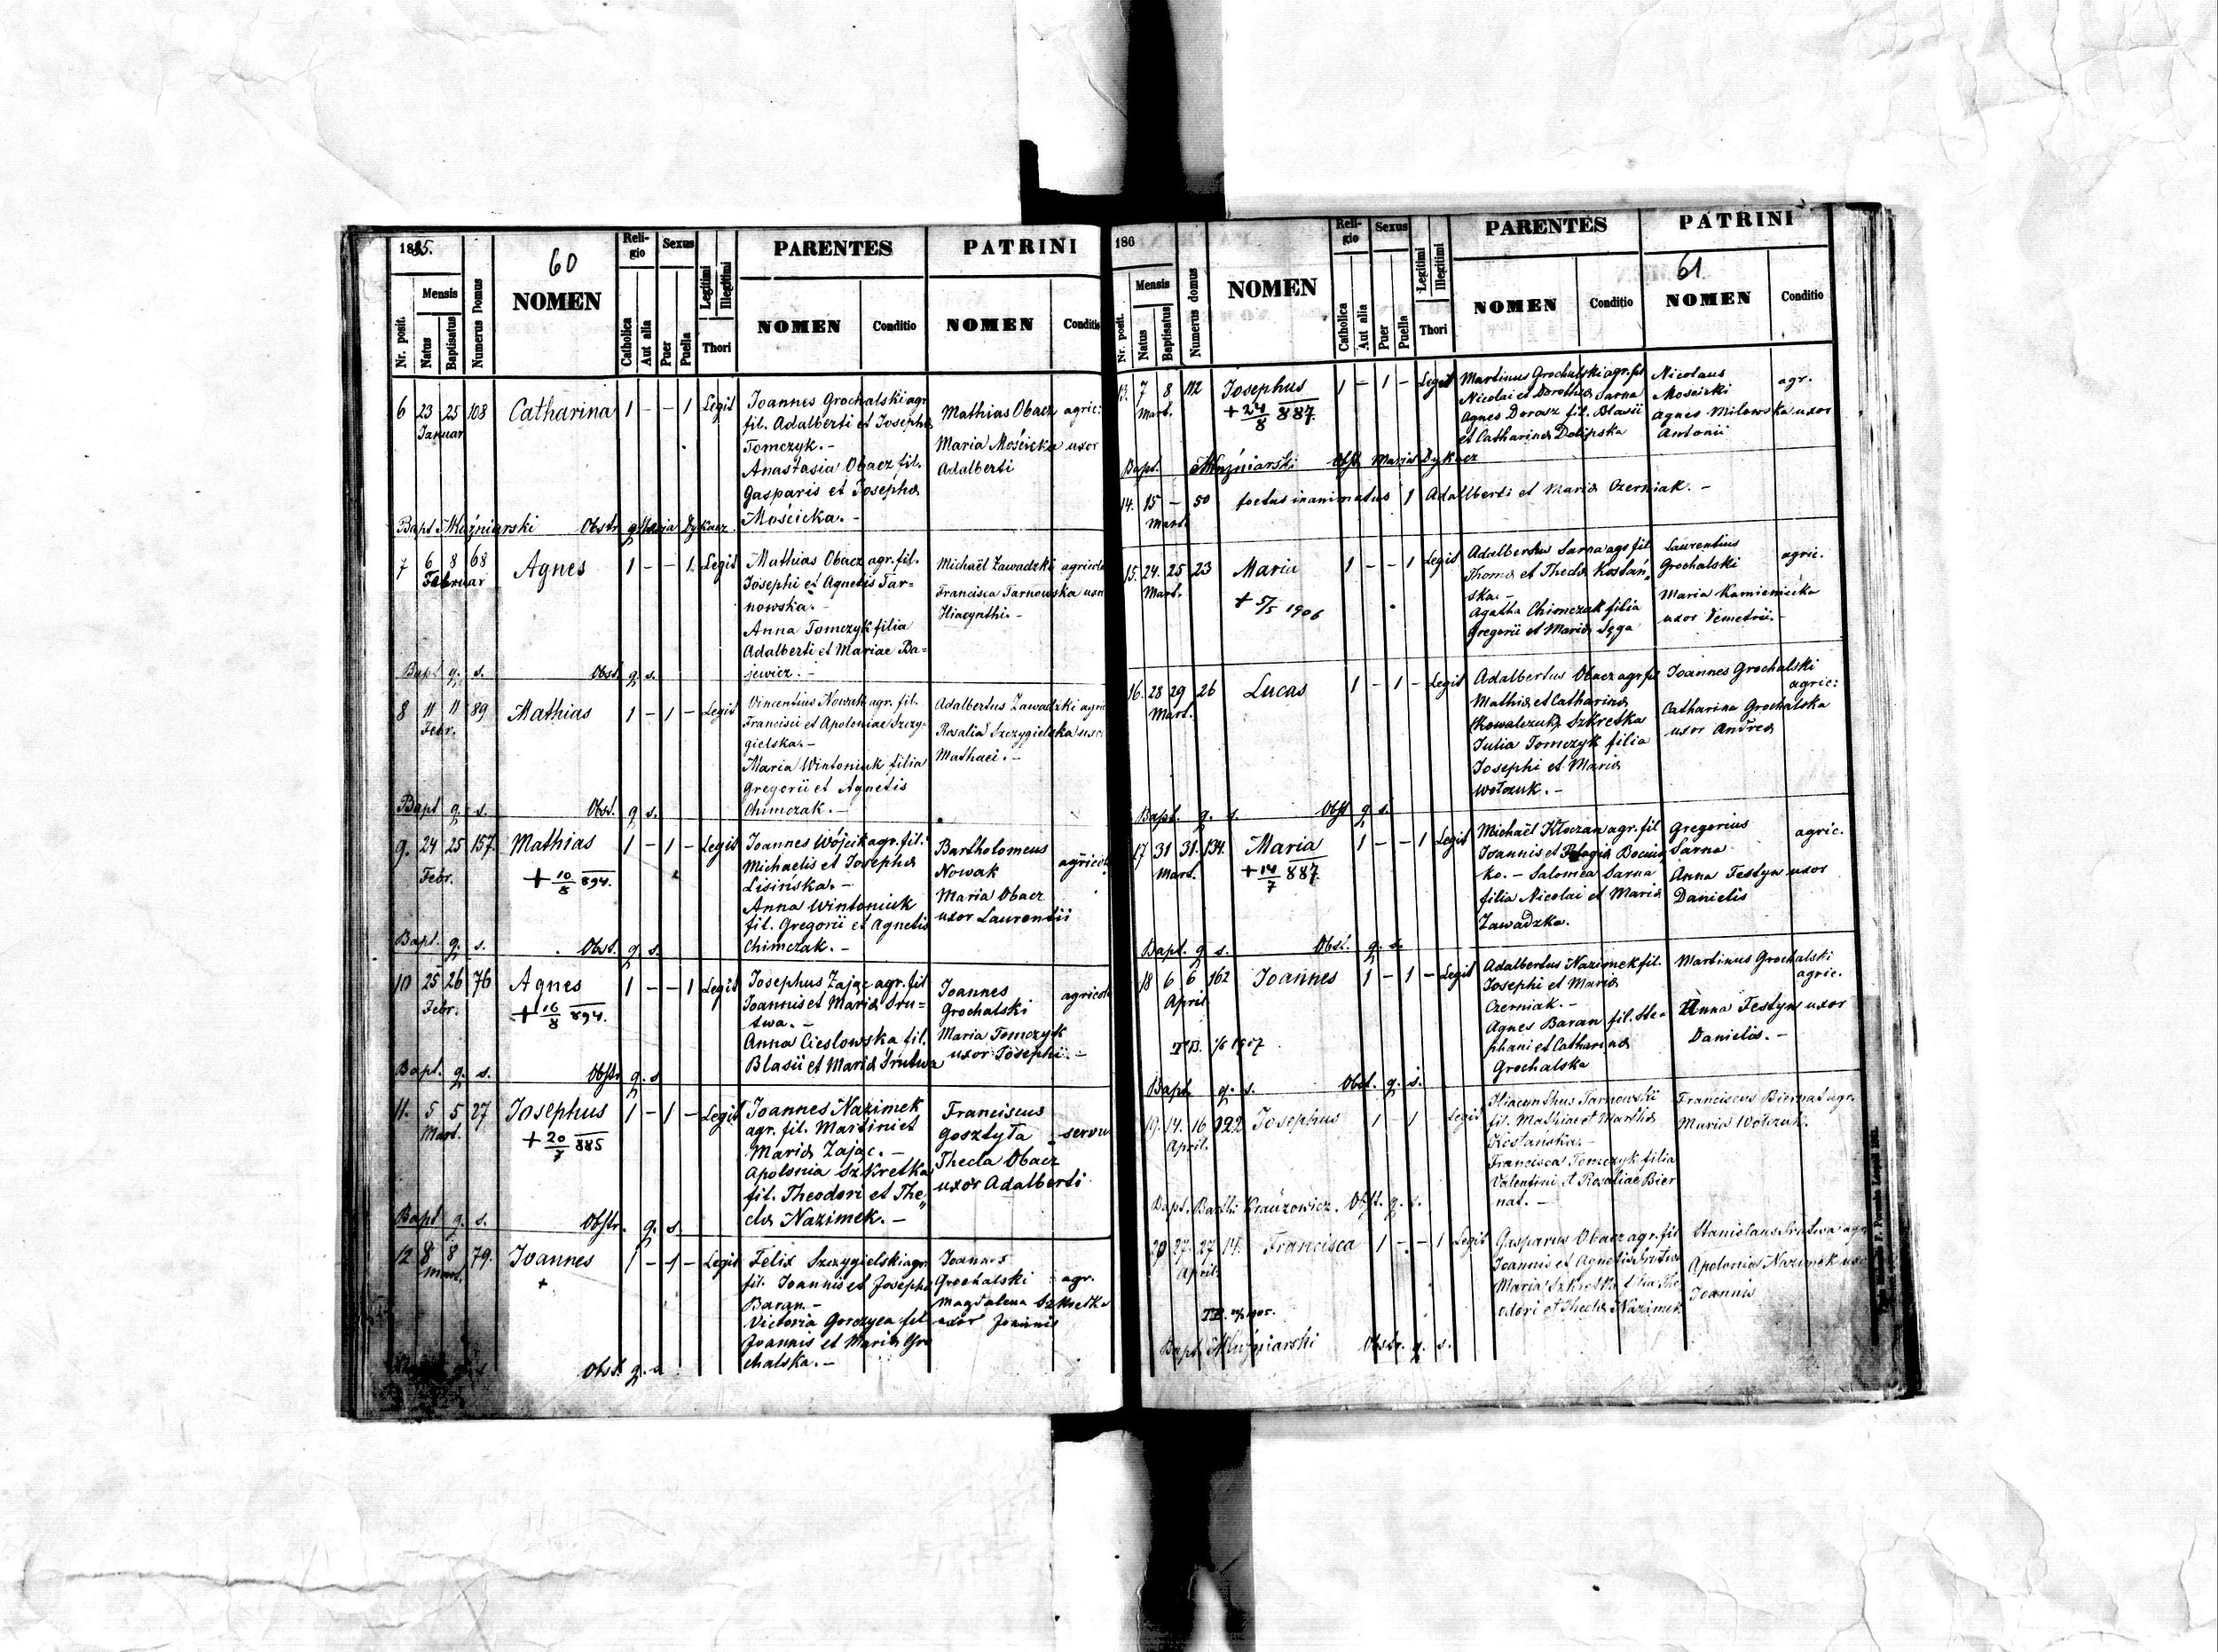 1885.
60
Mensis
Nr. posit.
Natus
Baptisatus
Numerus Domus
NOMEN
Reli-
gio
Catholica
Aut alia
Sexus
Puer
Puella
Legitimi
Illegitimi
Thori
PARENTES
NOMEN
Conditio
PATRINI
NOMEN
Conditio
6 23 25 108 Catharina 1 - - 1 Legit
Januar
Joannes Grochalski agr.
fil. Adalberti et Josepha
Tomczyk. -
Anastasia Obacz fil.
Gasparis et Josepha
Mościcka. -
Mathias Obacz agric:
Maria Mościcka uxor
Adalberti
Bapt. Muźniarski Obstr. Maria Dykacz
7 6 8 68 Agnes 1 - - 1. Legit
Februar
Mathias Obacz agr. fil.
Josephi et Agnetis Tar-
nowska. -
Anna Tomczyk filia
Adalberti et Mariae Ba=
jewicz. -
Michaël Zawadzki agricola
Francisca Tarnowska uxor
Hiacynthi. -
Bapt. q. s. Obst. q. s.
8 11 11 89 Mathias 1 - 1 - Legit
Febr.
Vincentius Nowak agr. fil.
Francisci et Apoloniae Szczy-
gielska. -
Maria Wintoniuk filia
Gregorii et Agnetis
Chimczak. -
Adalbertus Zawadzki agric
Rosalia Szczygielska uxor
Mathaei. -
Bapt. q. s. Obst. q. s.
9. 24 25 157. Mathias 1 - 1 - Legit
Febr.
+ 10/8 894.
Joannes Wójcik agr. fil.
Michaelis et Josepha
Lisińska. -
Anna Wintoniuk
fil. Gregorii et Agnetis
Chimczak. -
Bartholomeus
Nowak agricola
Maria Obacz
uxor Laurentii
Bapt. q. s. Obst. q. s.
10 25 26 76 Agnes 1 - - 1 Legit
Febr.
+ 16/8 894.
Josephus Zając agr. fil
Joannis et Maria Sru-
twa. -
Anna Cieslowska fil.
Blasii et Maria Srutwa
Joannes
Grochalski agricola
Maria Tomczyk
uxor Josephi. -
Bapt. q. s. Obstr. q. s
11. 5 5 27 Josephus 1 - 1 - Legit
Mart.
+ 20/7 885
Joannes Nazimek
agr. fil. Martini et
Maria Zając. -
Apolonia Szkretka
fil. Theodori et The„
cla Nazimek. -
Franciscus
Gosztyła - servu
Thecla Obacz
uxor Adalberti
Bapt q. s. Obstr. q. s
12 8 8 79. Joannes 1 - 1 - Legit
Mart.
+
Felix Szczygielski agr.
fil. Joannis et Josepha
Baran -
Victoria Gorczyca fil
Joannis et Maria Gro
chalska. -
Joannes
Grochalski - agr.
Magdalena Szkretka
uxor Joannis
Obst. q. s
186
61
Mensis
Nr. posit.
Natus
Baptisatus
Numerus domus
NOMEN
Reli-
gio
Catholica
Aut alia
Sexus
Puer
Puella
Legitimi
Illegitimi
Thori
PARENTES
NOMEN
Conditio
PATRINI
NOMEN
Conditio
13. 7 8 112 Josephus 1 - 1 - Legit
Mart.
+ 24/8 887.
Martinus Grochalski agr. fil
Nicolai et Dorothea Sarna
Agnes Dorasz fil. Blasii
et Catharina Dolipska
Nicolaus
Mościcki agr.
Agnes Milowska uxor
Antonii
Bapt. Muźniarski Obst Maria Dykacz
14. 15 - 50 foetus inanimatus 1 Adalberti et Maria Czerniak. -
Mart.
15. 24. 25 23 Maria 1 - - 1 Legit
Mart.
+ 5/5 1906
Adalbertus Sarna agr fil
Thoma et Thecla Kostań„
ska. -
Agatha Chimczak filia
Gregorii et Maria Sęga
Laurentius
Grochalski agric.
Maria Kamieniecka
uxor Demetrii. -
16. 28 29 26 Lucas 1 - 1 - Legit
Mart.
Adalbertus Obacz agr. fil
Mathia et Catharina
(Kowalczuk) Szkretka
Julia Tomczyk filia
Josephi et Maria
Wołczuk. -
Joannes Grochalski
agric:
Catharina Grochalska
uxor Andrea
Bapt. q. s. Obst q s.
17 31 31. 134. Maria 1 - - 1 Legit
Mart.
+ 14/7 887
Michaël Kłoczan agr. fil
Joannis et Pelagia
ko. - Salomea Sarna
filia Nicolai et Maria
Zawadzka.
Gregorius agric.
Sarna
Anna Festyn uxor
Danielis
Bapt. q s. Obst. q. s.
18 6 6 162 Joannes 1 - 1 - Legit
April
1907
Adalbertus Nazimek fil.
Josephi et Maria
Czerniak. -
Agnes Baran fil. Ste-
phani et Catharina
Grochalska
Martinus Grochalski
agric.
Anna Festyn uxor
Danielis. -
Bapt. q. s. Obst. q. s.
19. 14. 16 122 Josephus 1 - 1 Legit
April.
Hiacynthus Tarnowski
fil. Mathia et Martha
Kostanska. -
Francisca Tomczyk filia
Valentini et Rosaliae Bier
nat. -
Franciscus Biernat agr.
Maria Wołczuk.
Bapt. Krauzowicz. Obst. q. s.
20 27. 27 14. Francisca 1 - - 1 Legit
April.
1905.
Gasparus Obacz agr. fil
Joannis et Agnetis Srutwa
Maria Szkretka filia The-
odori et Thecla Nazimek
Stanislaus Srutwa agr
Apolonia Nazimek uxo
Joannis
Bapt. Muźniarski Obstr. q. s.